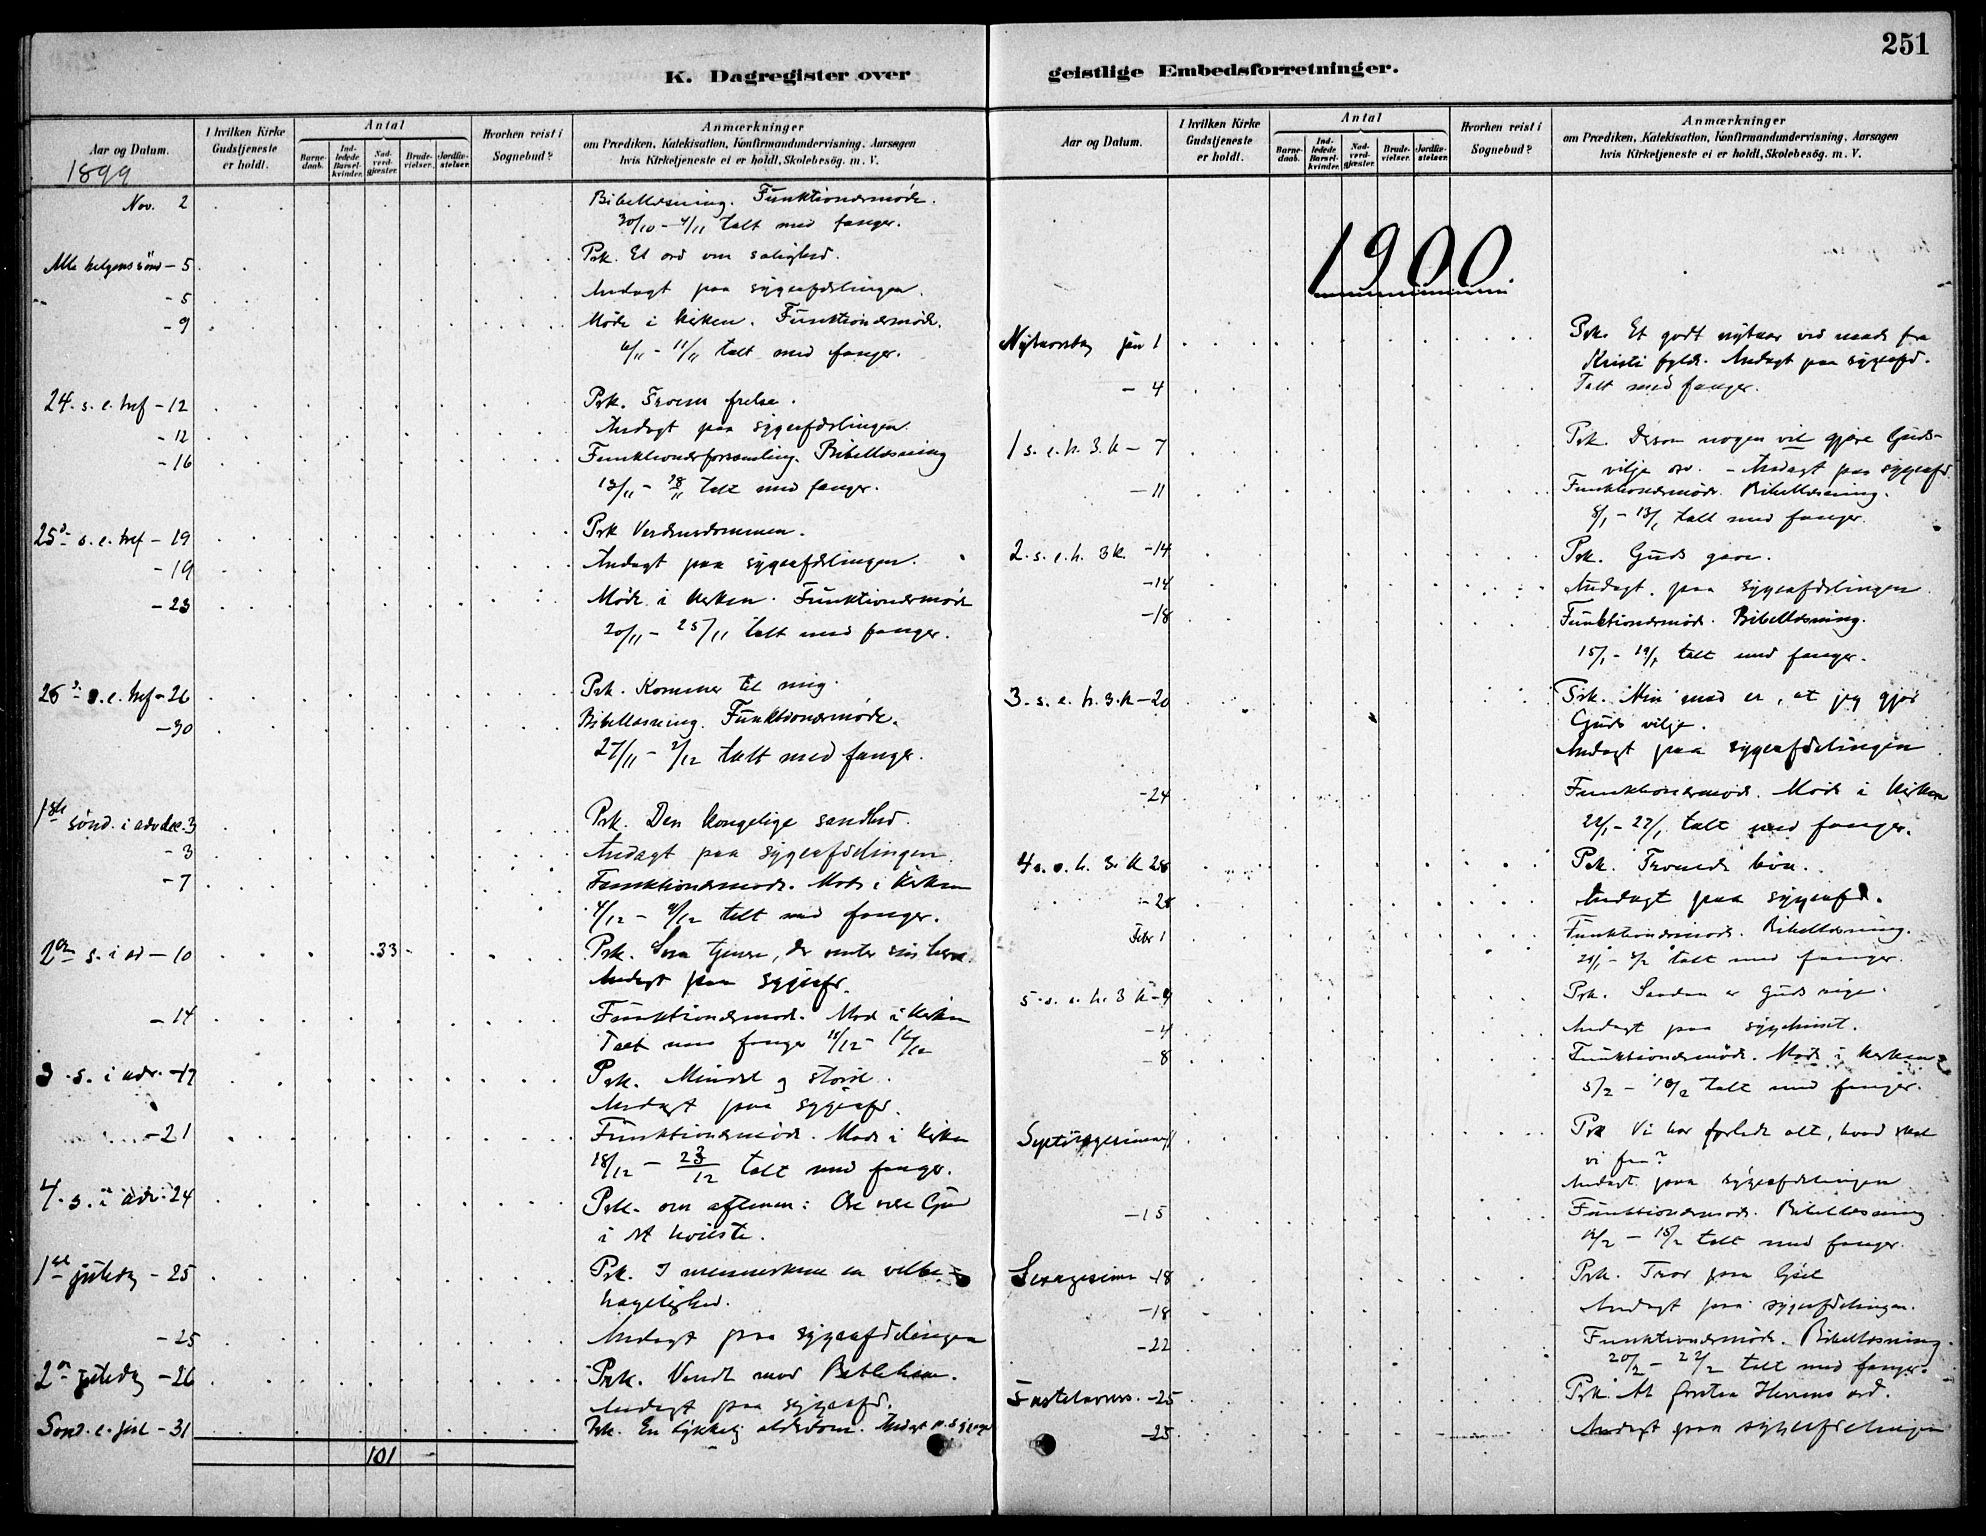 251
K. Dagregister over geistlige Embedsforretninger.
Aar og Datum.
1899
I hvilken Kirke Gudstjeneste er holdt.
Antal
Barnedaab.
Indledede Barselkvinder.
Nadverdgjæster.
Brudevielser.
Jordfæstelser.
Hvorhen reist i Sognebud?
Anmærkninger
om Prædiken, Katekisation, Konfirmandundervisning, Aarsagen
hvis Kirketjeneste ei er holdt, Skolebesög. m. V.
Nov. 2 Bibellæsning. Funktionærmøde.
30/10 - 4/11 talt med fanger.
Alle helgens sönd - 5 Prk. Et ord om salighed.
- 5 Andagt paa sygeafdelingen.
- 9 Møde i kirken. Funktionærmøde.
6/11 - 11/11 talt med fanger.
24. s. e. tref - 12 Prk. Troens frelse.
- 12 Andagt paa sygeafdelingen.
- 16 Funktionærforsamling. Bibellæsning
13/11 - 18/11 talt med fanger.
25 s. e. tref - 19 Prk Verdensdommen.
- 19 Andagt paa sygeafdelingen.
- 23 Møde i kirken. Funktionærmøde
20/11 - 25/11 talt med fanger.
26 s. e. tref - 26 Prk. Kommer til mig.
- 30 Bibellæsning. Funktionærmøde.
27/11 - 2/12 talt med fanger.
1ste sönd. i adv dec. 3 Prk. Den kongelige sandhed.
- 3 Andagt paa sygeafdelingen.
- 7 Funktionærmøde. Møde i kirken
4/12 - 9/12 talt med fanger.
2den s. i ad - 10 33 Prk. Som tjenere, der venter sin herre
Andagt paa sygeafd.
- 14 Funktionærmøde. Møde i kirken
Talt med fanger 11/12 - 16/12
3. s. i adv. - 17 Prk. Mindst og störst.
Andagt paa sygeafd.
- 21 Funktionærmøde. Møde i kirken
18/12 - 23/12 talt med fanger.
4. s. i adv. 24 Prk. om aftenen: Ære være Gud
i det höieste.
1ste juledag - 25 Prk. I menneskene en velbe-
hagelighed.
- 25 Andagt paa sygeafdelingen
2den juledag - 26 Prk. Vendt mod Bethlehem.
Andagt paa sygeafd.
Sönd. e. jul - 31 Prk. En lykkelig alderdom. Andagt p. sygeafd
101
Aar og Datum.
I hvilken Kirke Gudstjeneste er holdt.
Antal
Barnedaab.
Indledede Barselkvinder.
Nadverdgjæster.
Brudevielser.
Jordfæstelser.
Hvorhen reist i Sognebud?
Anmærkninger
om Prædiken, Katekisation, Konfirmandundervisning, Aarsagen
hvis Kirketjeneste ei er holdt, Skolebesög. m. V.
1900.
Nytaarsdag jan 1 Prk. Et godt nytaar ved naade fra
Kristi fylde. Andagt paa sygeafd.
- 4 Talt med fanger.
1 s. e. h. 3. k - 7 Prk. Dersom nogen vil gjøre Guds-
vilje osv. - Andagt paa sygeafd.
- 11 Funktionærmøde. Bibellæsning.
8/1 - 13/1 talt med fanger.
2. s. e. h. 3 k. - 14 Prk. Guds gave.
- 14 Andagt paa sygeafdelingen
- 18 Funktionærmøde. Bibellæsning.
15/1 - 19/1 talt med fanger.
3. s. e. h. 3. k - 20 Prk. Min mad er, at jeg gjør
Guds vilje.
Andagt paa sygeafdelingen
- 24 Funktionærmøde. Møde i kirken
22/1 - 27/1 talt med fanger.
4 s. e. h. 3 k 28 Prk. Troendes bön.
- 28 Andagt paa sygeafd.
Febr 1 Funktionærmøde. Bibellæsning.
talt med fanger.
5. s. e. h. 3 k - 4 Prk. Saadan er Guds rige.
- 4 Andagt paa sygehuset.
- 8 Funktionærmøde. Møde i kirken
5/2 - 10/2 talt med fanger.
Septuagesima 11 Prk Vi har forladt alt, hvad skal
vi faa?
Andagt paa sygeafdelingen
- 15 Funktionærmøde. Bibellæsning
12/2 - 15/2 talt med fanger.
Sexagesima - 18 Prk. Tror paa lyset
- 18 Andagt paa sygeafdelingen.
- 22 Funktionærmøde. Bibellæsning.
20/2 - 22/2 talt med fanger.
Fastelavnss. - 25 Prk. At forstaa Herrens ord.
- 25 Andagt paa sygeafdelingen